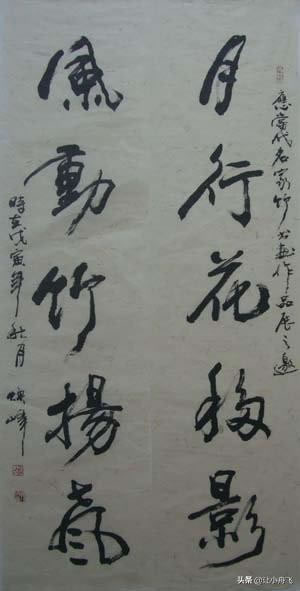 應當代名家竹書畫作品展之邀
月行花移影
風動竹揚氣
時在戊寅年秋月
头条 @让小舟飞